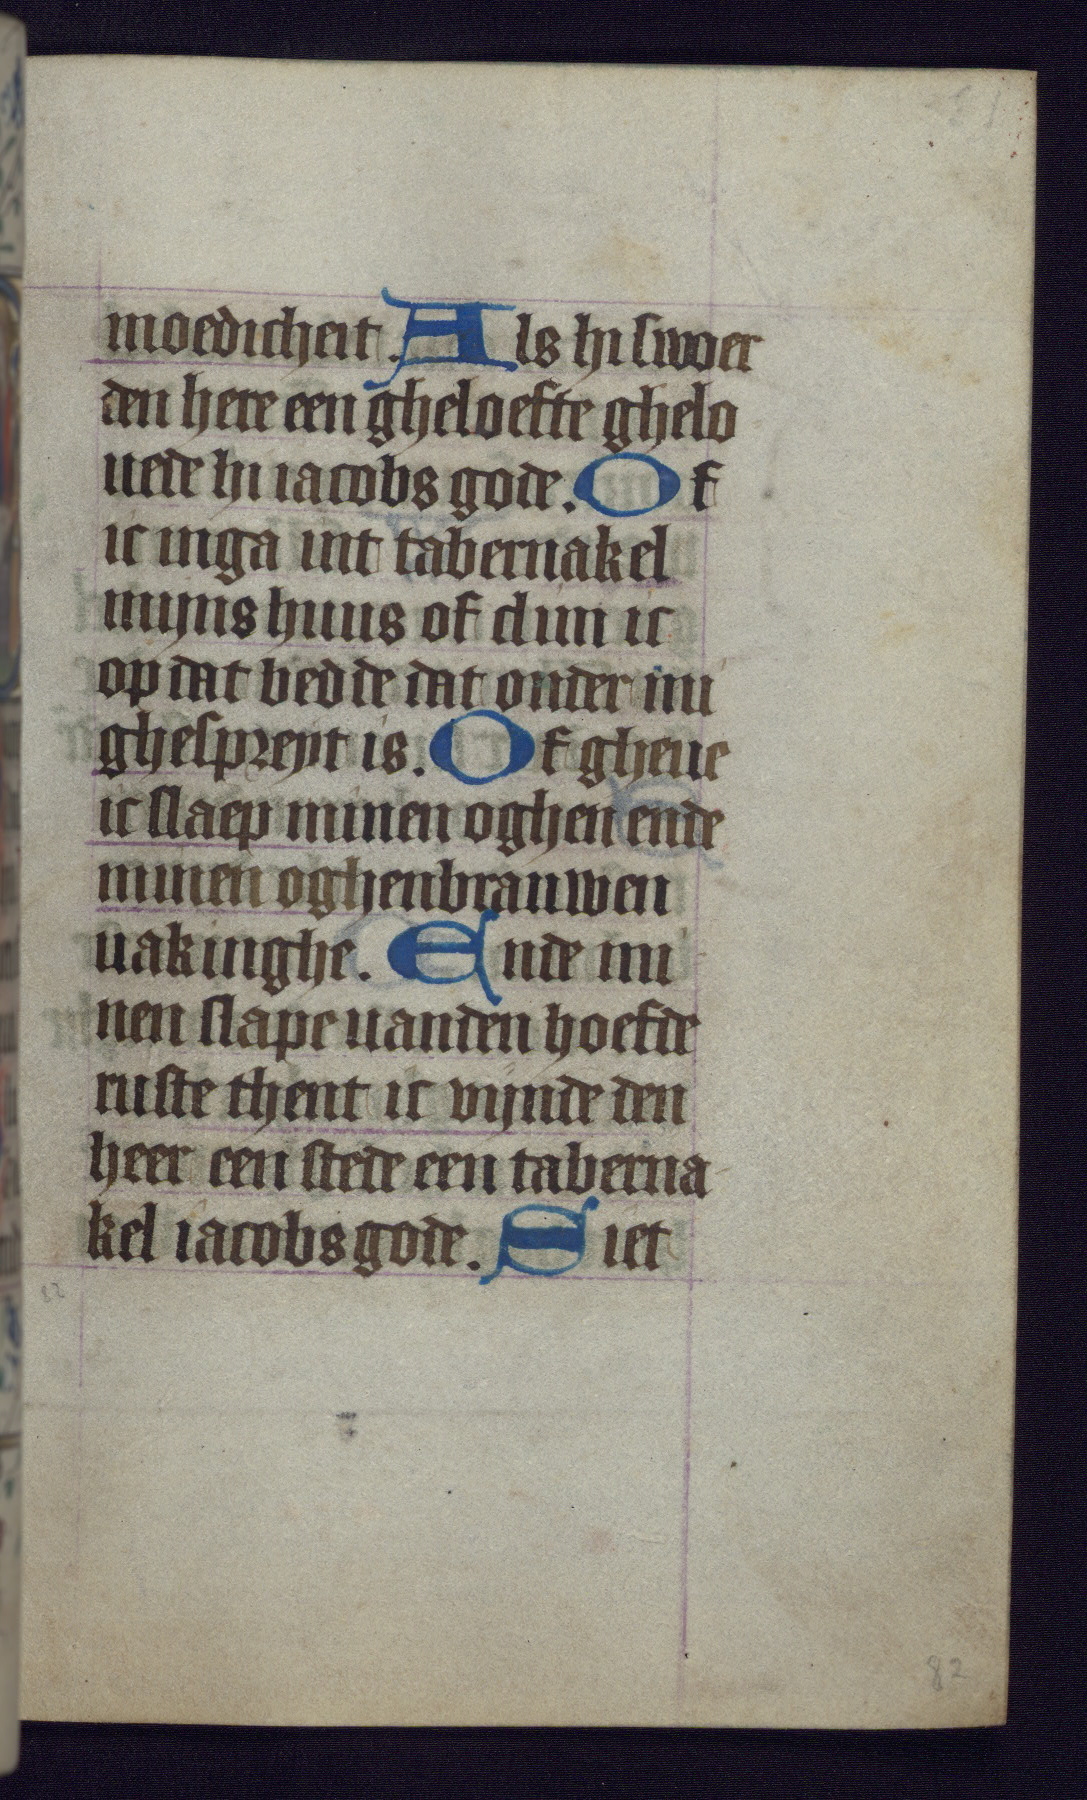 moedicheit. Als hi swoer
den here een gheloefte ghelo
uede hi iacobs gode. Of
ic inga int tabernakel
mijns huus of clim ic
op dat bedde dat onder mi
ghespreyt is. Of gheue
ic slaep minen oghen ende
minen oghenbrauwen
uakinghe. Ende mi
nen slape uanden hoefde
ruste thent ic vijnde den
heer een stede een taberna
kel iacobs gode. Siet
82